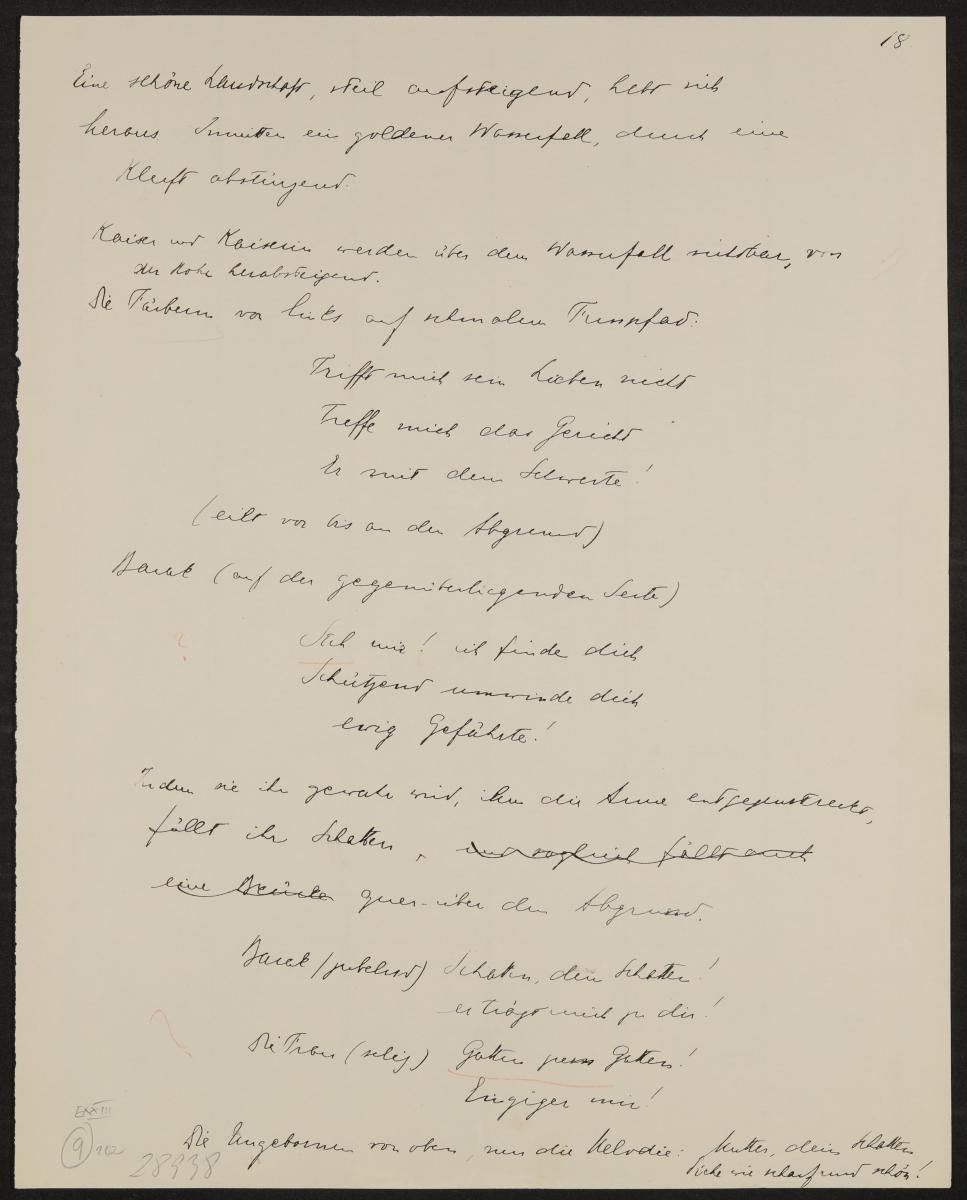 18
Eine schöne Landschaft, steil aufsteigend, hebt sich
heraus. Inmitten ein goldener Wasserfall, durch eine
Kluft abstürzend.
Kaiser und Kaiserin werden über dem Wasserfall sichtbar, von
der Höhe herabsteigend.
Die Färberin von links auf schmalem Fusspfad:
Trifft mich sein Lieben nicht
Treffe mich das Gericht
Er mit dem Schwerte!
(eilt vor bis an den Abgrund)
Barak (auf der gegenüberliegenden Seite)
?
Steh nur! ich finde dich
Schützend umwinde dich
ewig Gefährte!
Indem sie ihn gewahr wird, ihm die Arme entgegenstreckt,
fällt ihr Schatten, und zugleich fällt auch
eine Brücke quer über den Abgrund.
Barak (jubelnd) Schatten, dein Schatten!
er trägt mich zu dir!
Die Frau (selig) Gatten zum Gatten!
Einziger mir!
Die Ungebornen von oben, nun die Melodie: Mutter, dein Schatten
Siehe wie scharf und schön!
LXXIII
9 102
28938